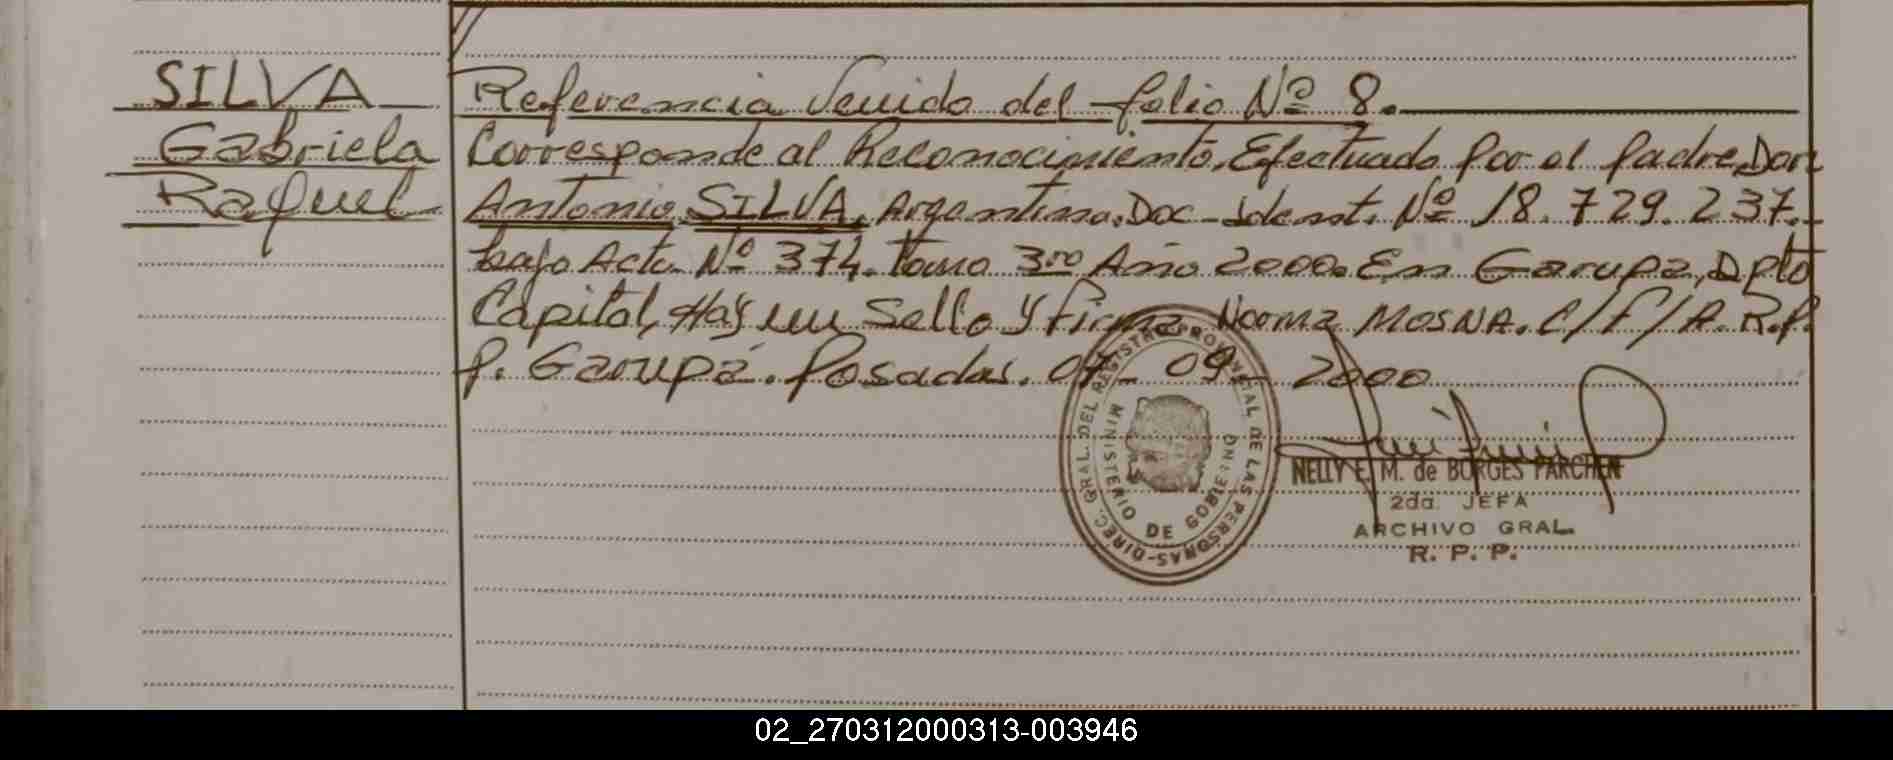 SILVA
Gabriela
Raquel
Referencia Venido del folio Nº 8.
Corresponde al Reconocimiento, Efectuado por el padre, Don
Antonio SILVA, Argentino. Doc. Ident. Nº 18.729.237.-
bajo Acta Nº 374. Tomo 3ro Año 2000. En Garupa, Dpto
Capital, Hay un Sello y firma Norma MOSNA. C/F/A. R.P.
P. Garupá. Posadas. 07-09-2000
DIREC. GRAL. DEL REGISTRO PROVINCIAL DE LAS PERSONAS
MINISTERIO DE GOBIERNO
NELLY E. M. de BORGES PARCHEN
2da. JEFA
ARCHIVO GRAL.
R. P. P.
02_270312000313-003946